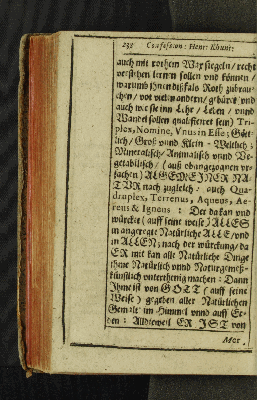 232 Confession: Henr: Khunr:
auch mit rothem Wax siegeln/ recht
verstehen lernen sollen vnd können/
warumb jhnen dißfals Roth zubrau-
chen/ vor vielen andern/ gebüret/ vnd
auch wie sie inn Lehr/ Leben/ vnnd
Wandel sollen qualificiret sein) Tri-
plex, Nomine, Vnus in Esse; Gött-
lich/ Groß vnnd Klein-Weltlich;
Mineralisch/ Animalisch vnnd Ve-
getabilisch/ (auß obangezognen vr-
sachen) ALGEMEINER NA-
TVR nach zugleich: auch Qua-
druplex, Terrenus, Aqueus, Ae-
reus & Igneus: Der da kan vnd
würcket (auff seine weise) ALLES
in angeregte Natürliche ALLE/ vnd
in ALLEN; nach der würckung/ da
ER mit kan alle Natürliche Dinge
jhme Natürlich vnnd Naturgemeß-
künstlich vnterthenig machen: Dann
Jhme ist von GOTT (auff seine
Weise) gegeben aller Natürlichen
Gewalt im Himmel vnnd auff Er-
den: Alldieweil ER IST von